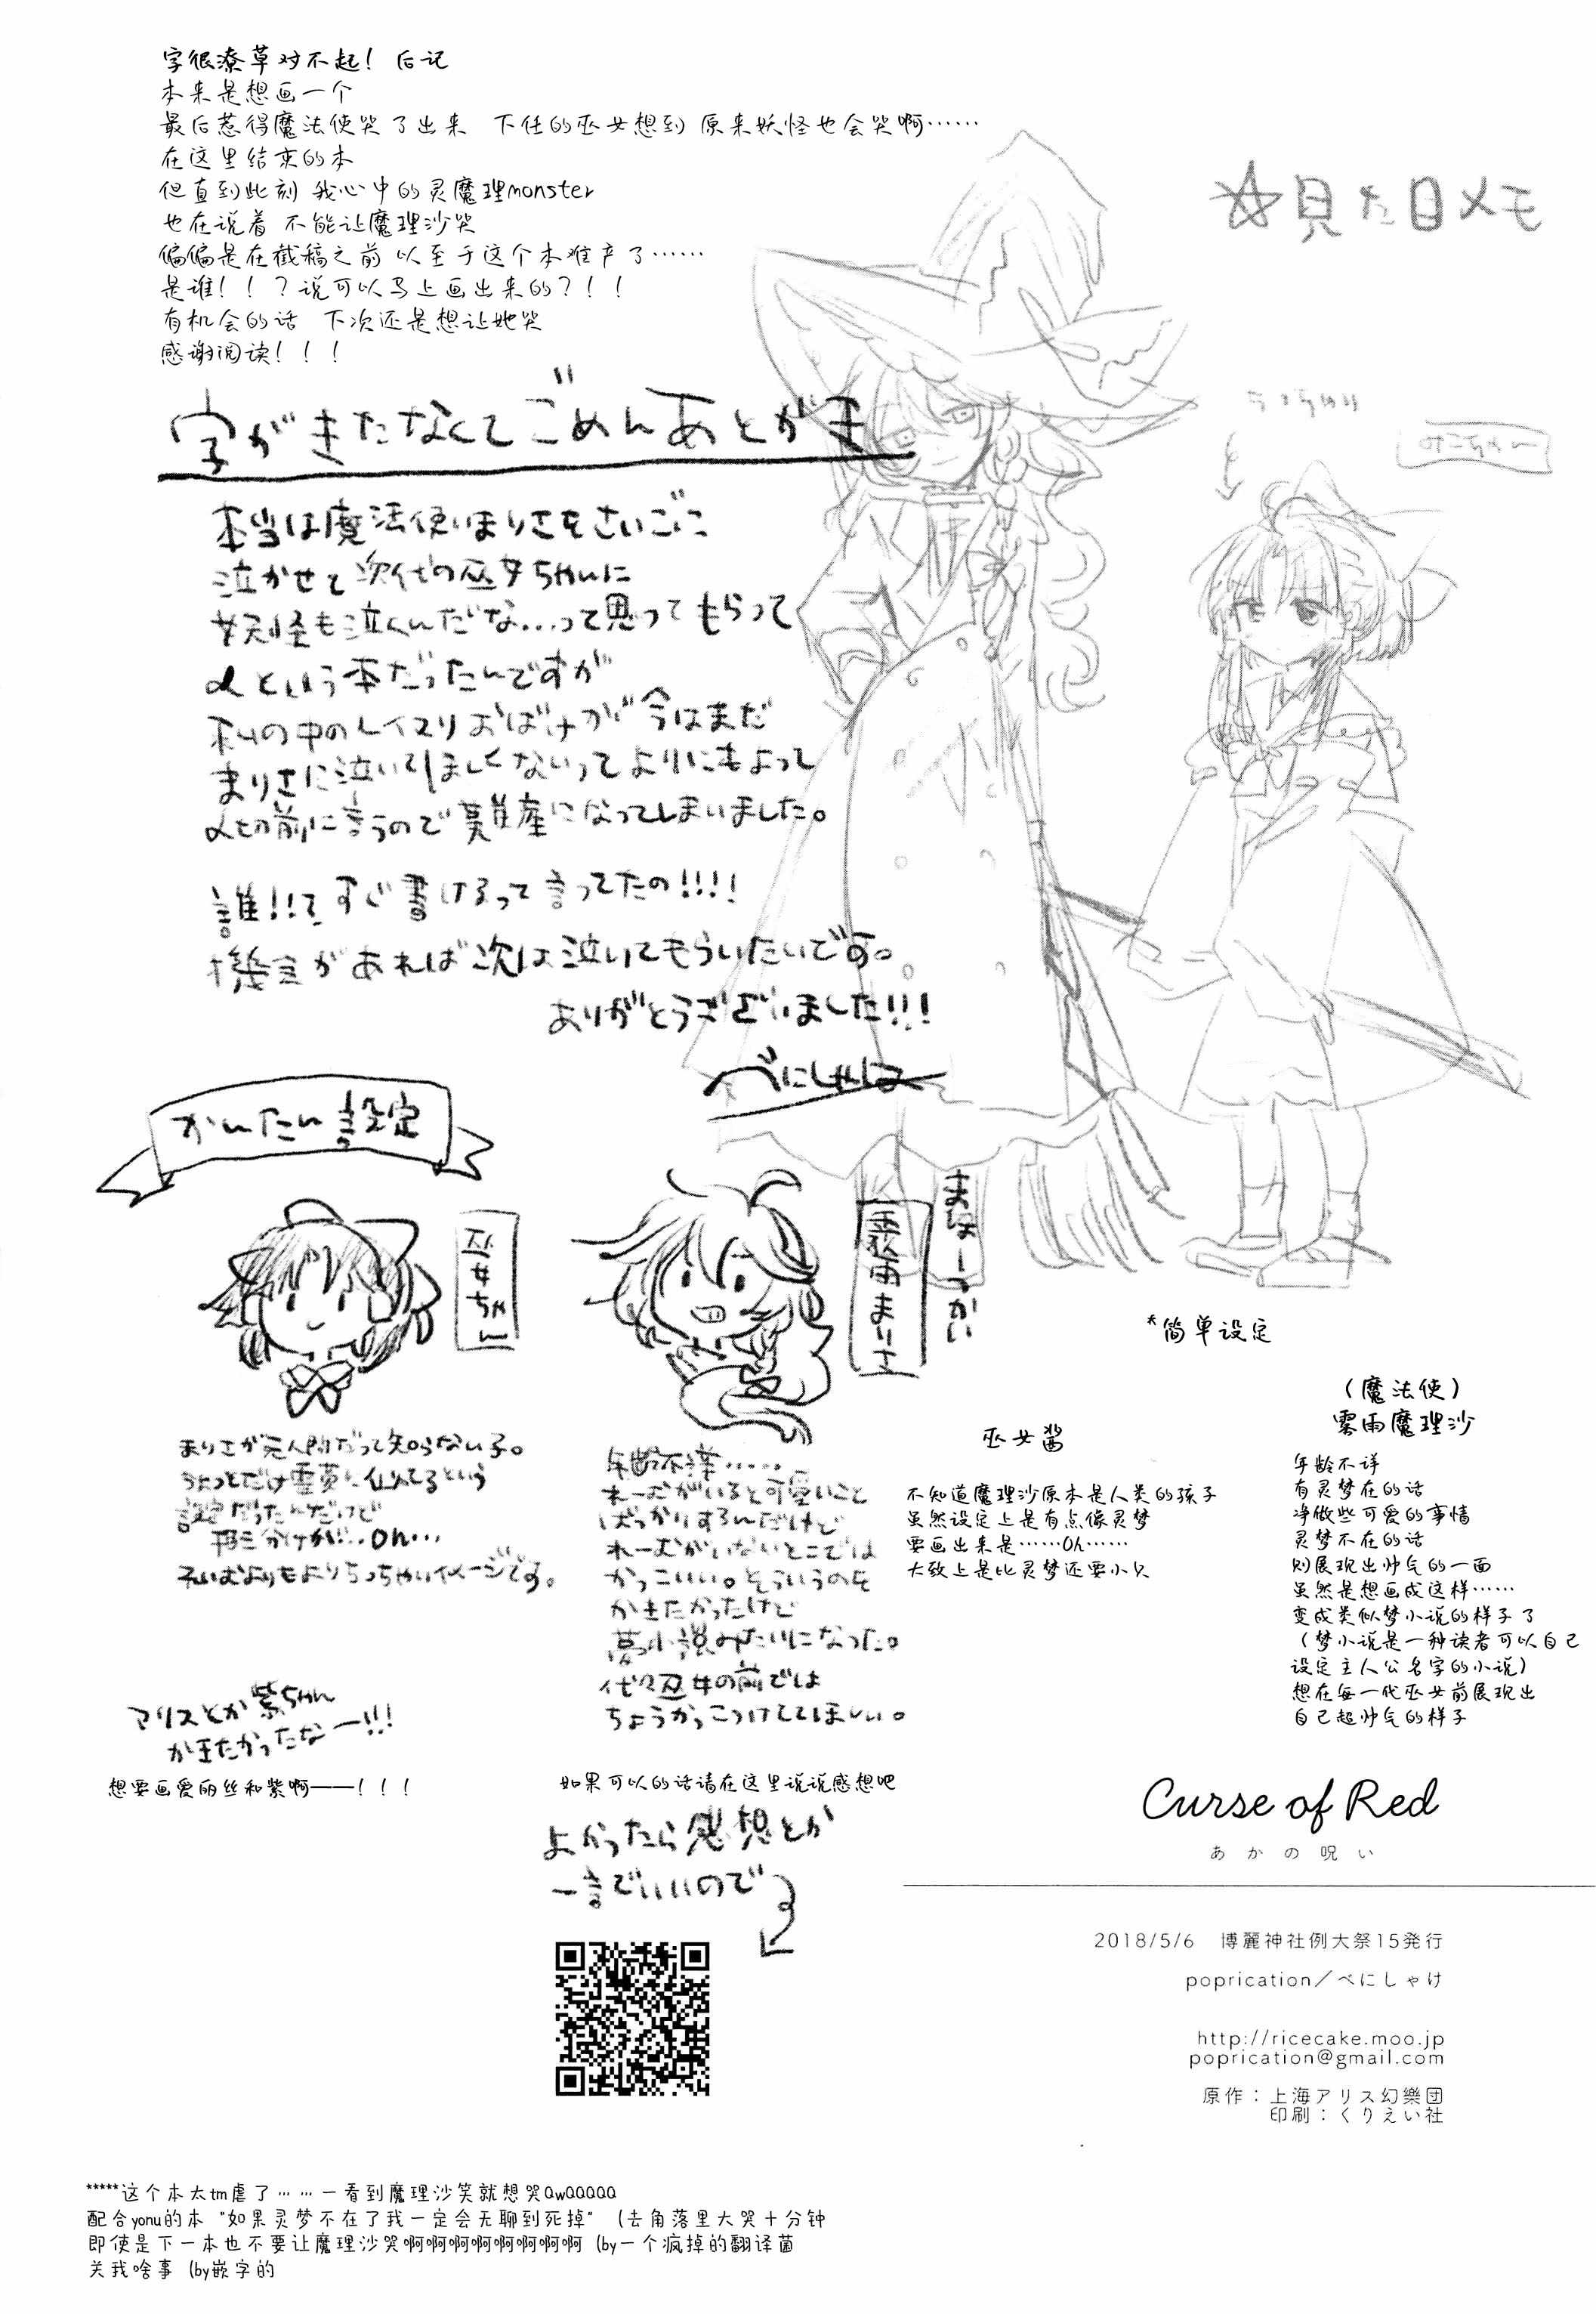 字很潦草对不起！ 后记
本来是想画一个
最后惹得魔法使哭了出来 下任的巫女想到 原来妖怪也会哭啊……
在这里结束的本
但直到此刻 我心中的灵魔理monster
也在说着 不能让魔理沙哭
偏偏是在截稿之前 以至于这个本难产了……
是谁！！？说可以马上画出来的？！！
有机会的话 下次还是想让她哭
感谢阅读！！！
☆見た目メモ
字がきたなくてごめんあとがき
本当は魔法使いまりさをさいごに
泣かせて次代の巫女ちゃんに
妖怪も泣くんだな...って思ってもらって
〆という本だったんですが
私の中のレイマリおばけが今はまだ
まりさに泣いてほしくないってよりにもよって
〆切前に言うので難産になってしまいました。
誰!!? すぐ書けるって言ってたの!!!!
機会があれば次は泣いてもらいたいです。
ありがとうございました!!!
べにしゃけ
かんたん設定
巫女ちゃん
まほーつかい
霧雨まりさ
まりさが元人間だって知らない子。
ちょっとだけ霊夢に似てるという
設定だったんだけど
描き分けが...Oh...
れいむよりもよりちっちゃいイメージです。
年齢不詳......
れーむがいると可愛いこと
ばっかりするんだけど
れーむがいないとこでは
かっこいい。そういうのを
かきたかったけど
夢小説みたいになった。
代々巫女の前では
ちょうかっこつけててほしい。
*简单设定
巫女酱
不知道魔理沙原本是人类的孩子
虽然设定上是有点像灵梦
要画出来是……Oh……
大致上是比灵梦还要小只
（魔法使）
雾雨魔理沙
年龄不详
有灵梦在的话
净做些可爱的事情
灵梦不在的话
则展现出帅气的一面
虽然是想画成这样……
变成类似梦小说的样子了
（梦小说是一种读者可以自己
设定主人公名字的小说）
想在每一代巫女前展现出
自己超帅气的样子
アリスとか紫ちゃん
かきたかったなー!!!
想要画爱丽丝和紫啊——！！！
如果可以的话请在这里说说感想吧
よかったら感想とか
一言でいいので
Curse of Red
あかの呪い
2018/5/6 博麗神社例大祭15発行
poprication／べにしゃけ
http://ricecake.moo.jp
poprication@gmail.com
原作：上海アリス幻樂団
印刷：くりえい社
*****这个本太tm虐了……一看到魔理沙笑就想哭QwQQQQQ
配合yonu的本 "如果灵梦不在了我一定会无聊到死掉" （去角落里大哭十分钟
即使是下一本也不要让魔理沙哭啊啊啊啊啊啊啊啊 (by一个疯掉的翻译菌
关我啥事 (by嵌字的